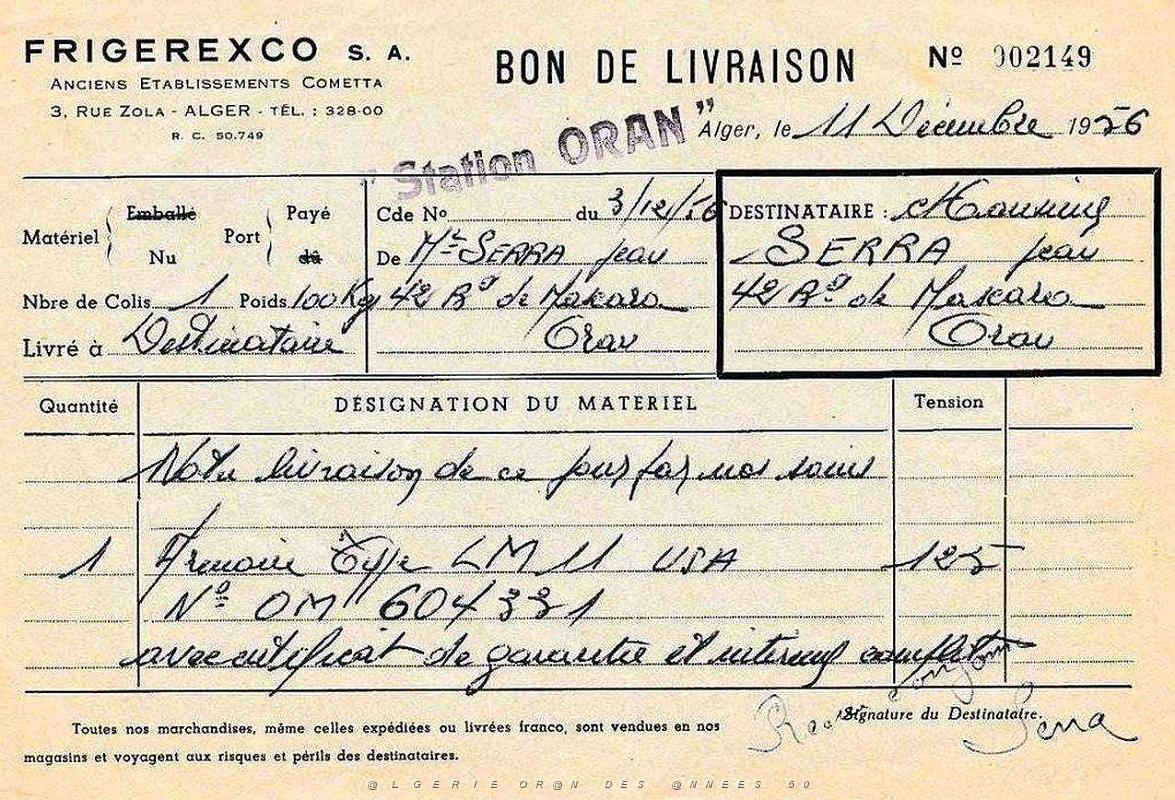 FRIGEREXCO S. A.
ANCIENS ETABLISSEMENTS COMETTA
3, RUE ZOLA - ALGER - TÉL. : 328-00
R. C. 50.749
BON DE LIVRAISON
Nº 002149
"Station ORAN"
Alger, le 11 Décembre 1956
Matériel Emballé Nu
Port Payé dû
Nbre de Colis 1 Poids 100 Kg
Livré à Destinataire
Cde No du 3/12/56
De Mr SERRA Jean
42 Bd de Maskara
Oran
DESTINATAIRE : Monsieur
SERRA Jean
42 Bd de Maskara
Oran
Quantité DÉSIGNATION DU MATERIEL Tension
Notre livraison de ce jour par nos soins
1 Armoire Type LM 11 USA 125
Nº OM 604331
avec certificat de garantie et interieur complet
Signature du Destinataire.
Serra
Toutes nos marchandises, même celles expédiées ou livrées franco, sont vendues en nos
magasins et voyagent aux risques et périls des destinataires.
@LGERIE OR@N DES @NNEES 50